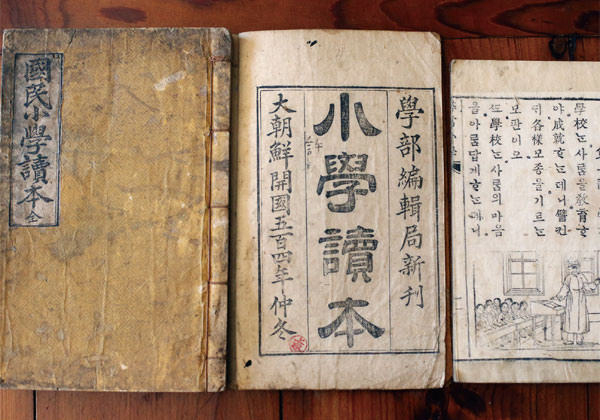 國民小學讀本 全
學部編輯局新刊
小學讀本
大朝鮮開國五百四年仲冬
學校ᄂᆞᆫ사ᄅᆞᆷ을敎育ᄒᆞ
야成就ᄒᆞᄂᆞᆫ데니譬컨
ᄃᆡ各樣모종을기르ᄂᆞᆫ
모판이오
ᄯᅩ學校ᄂᆞᆫ사ᄅᆞᆷ의마음
을아ᄅᆞᆷ답게ᄒᆞᄂᆞᆫ데니